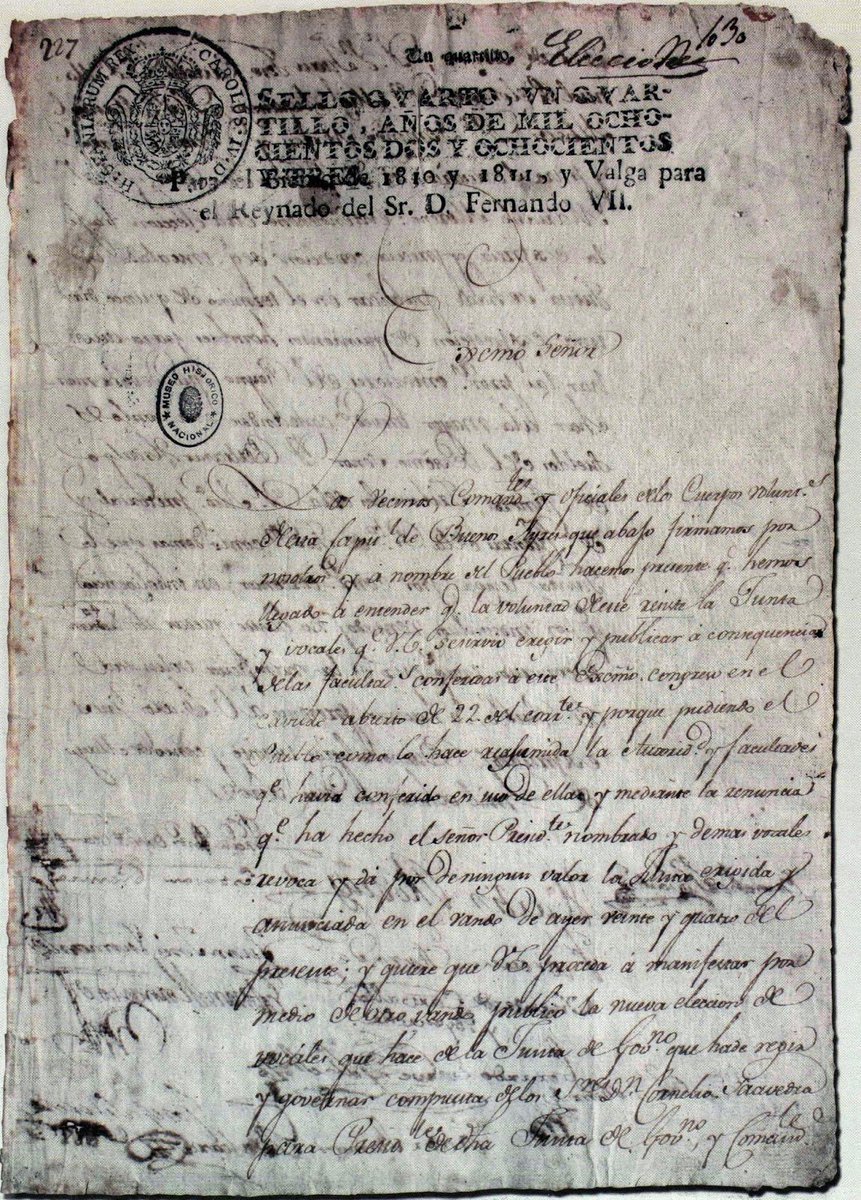 227
Un quartillo.
Elecciones
630
HISPANIARUM REX CAROLUS IV D
SELLO QVARTO, VN QVAR-
TILLO, AÑOS DE MIL OCHO-
CIENTOS DOS Y OCHOCIENTOS
TRES.
Para el Bienio de 1810 y 1811, y Valga para
el Reynado del Sr. D. Fernando VII.
Exmo Señor
MUSEO HISTORICO
NACIONAL
Los vecinos Comandtes y oficiales delos Cuerpos volunts
de esta Capitl. de Buenos Ayres que abajo firmamos por
nosotros y á nombre del Pueblo hacemos presente q.e hemos
llegado á entender q.e la voluntad de este resiste la Junta
y vocales q.e V.E. se sirvió erigir y publicar á consequencia
delas facultads. conferidas á este Exmo. congreso en el
cavildo abierto de 22 del corrte. y porque pudiendo el
Pueblo como lo hace reasumida la Autorid.d y facultades
q.e havia conferido en uso de ellas y mediante la renuncia
q.e ha hecho el señor Presidte. nombrado y demas vocales
revoca y dá por de ningun valor la Junta erigida y
anunciada en el vando de ayer veinte y quatro del
presente; y quiere que V.E. proceda á manifestar por
medio de otro vando publico la nueva eleccion de
vocales que hace de la Junta de Govno. que hade regir
y governar compuesta delos Sres. Dn. Cornelio Saavedra
para Presidte. de dha Junta de Govno., y Comande